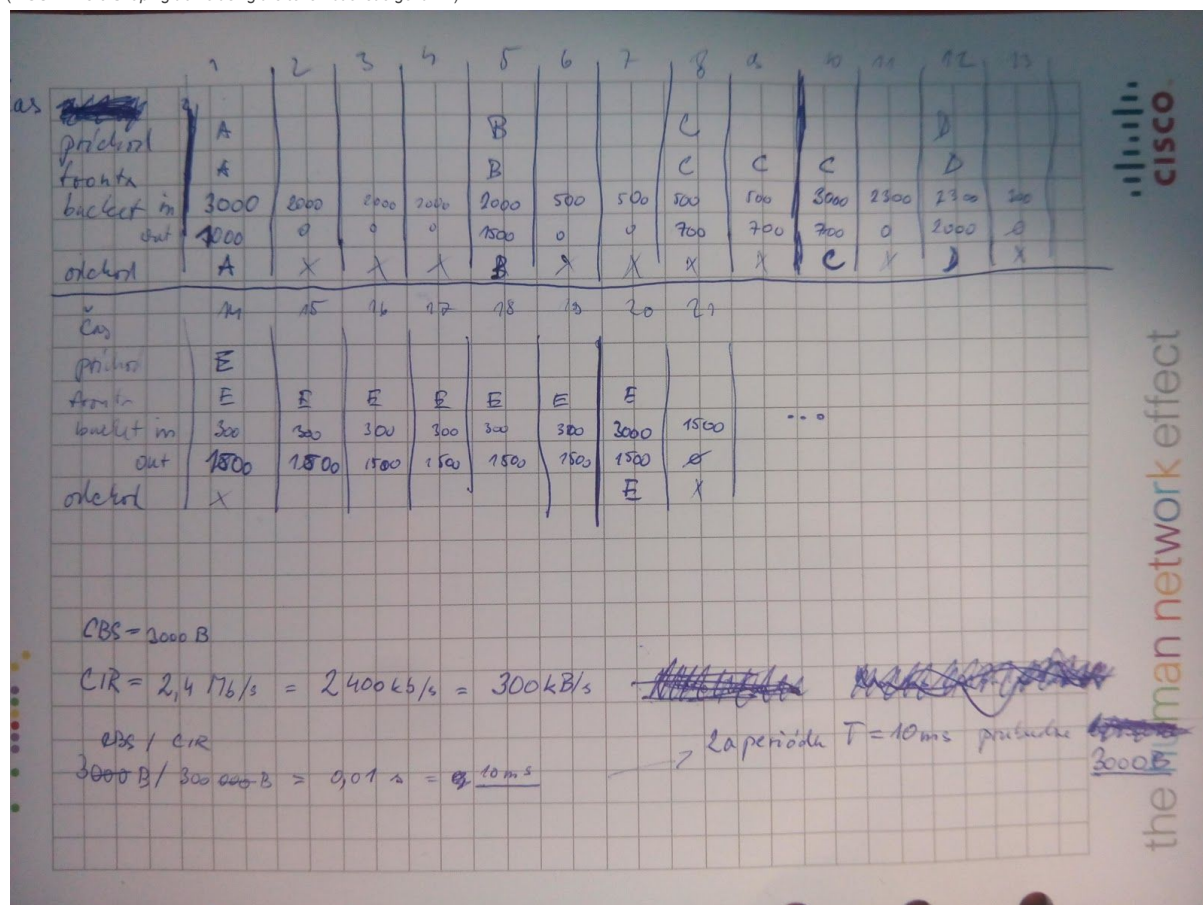 1 2 3 4 5 6 7 8 9 10 11 12 13
as
príchod A B C D
fronta A B C C C D
bucket in 3000 2000 2000 2000 2000 500 500 500 500 3000 2300 2300 300
out 1000 0 0 0 1500 0 0 700 700 700 0 2000 0
odchod A X X X B X X X X C X D X
Čas 14 15 16 17 18 19 20 21
príchod E
fronta E E E E E E E
bucket in 300 300 300 300 300 300 3000 1500 ...
out 1500 1500 1500 1500 1500 1500 1500 0
odchod X E X
CBS = 3000 B
CIR = 2,4 Mb/s = 2400 kb/s = 300kB/s
CBS / CIR
3000 B / 300 000 B = 0,01 s = 10ms
Za periódu T = 10ms pribudne
3000B
cisco
the human network effect